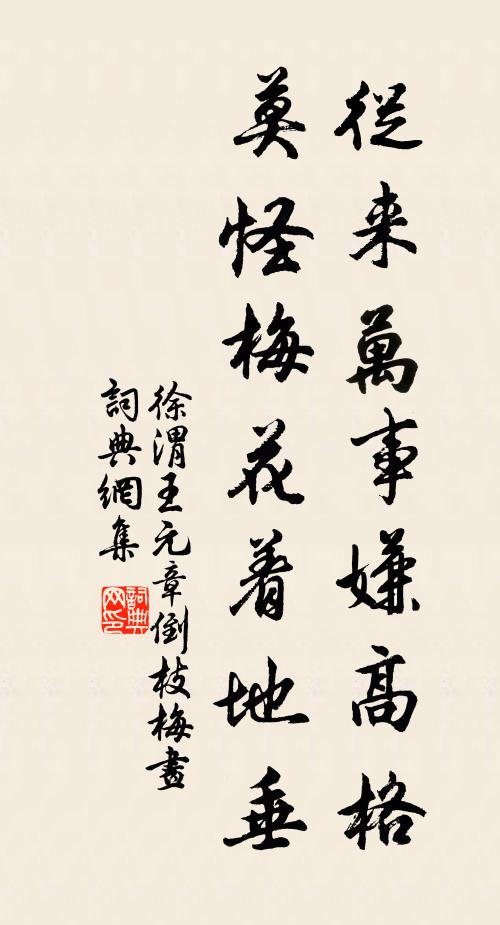 從来萬事嫌高格
莫怪梅花着地垂
徐渭王元章倒枝梅畫
詞典網集
詞典
网印